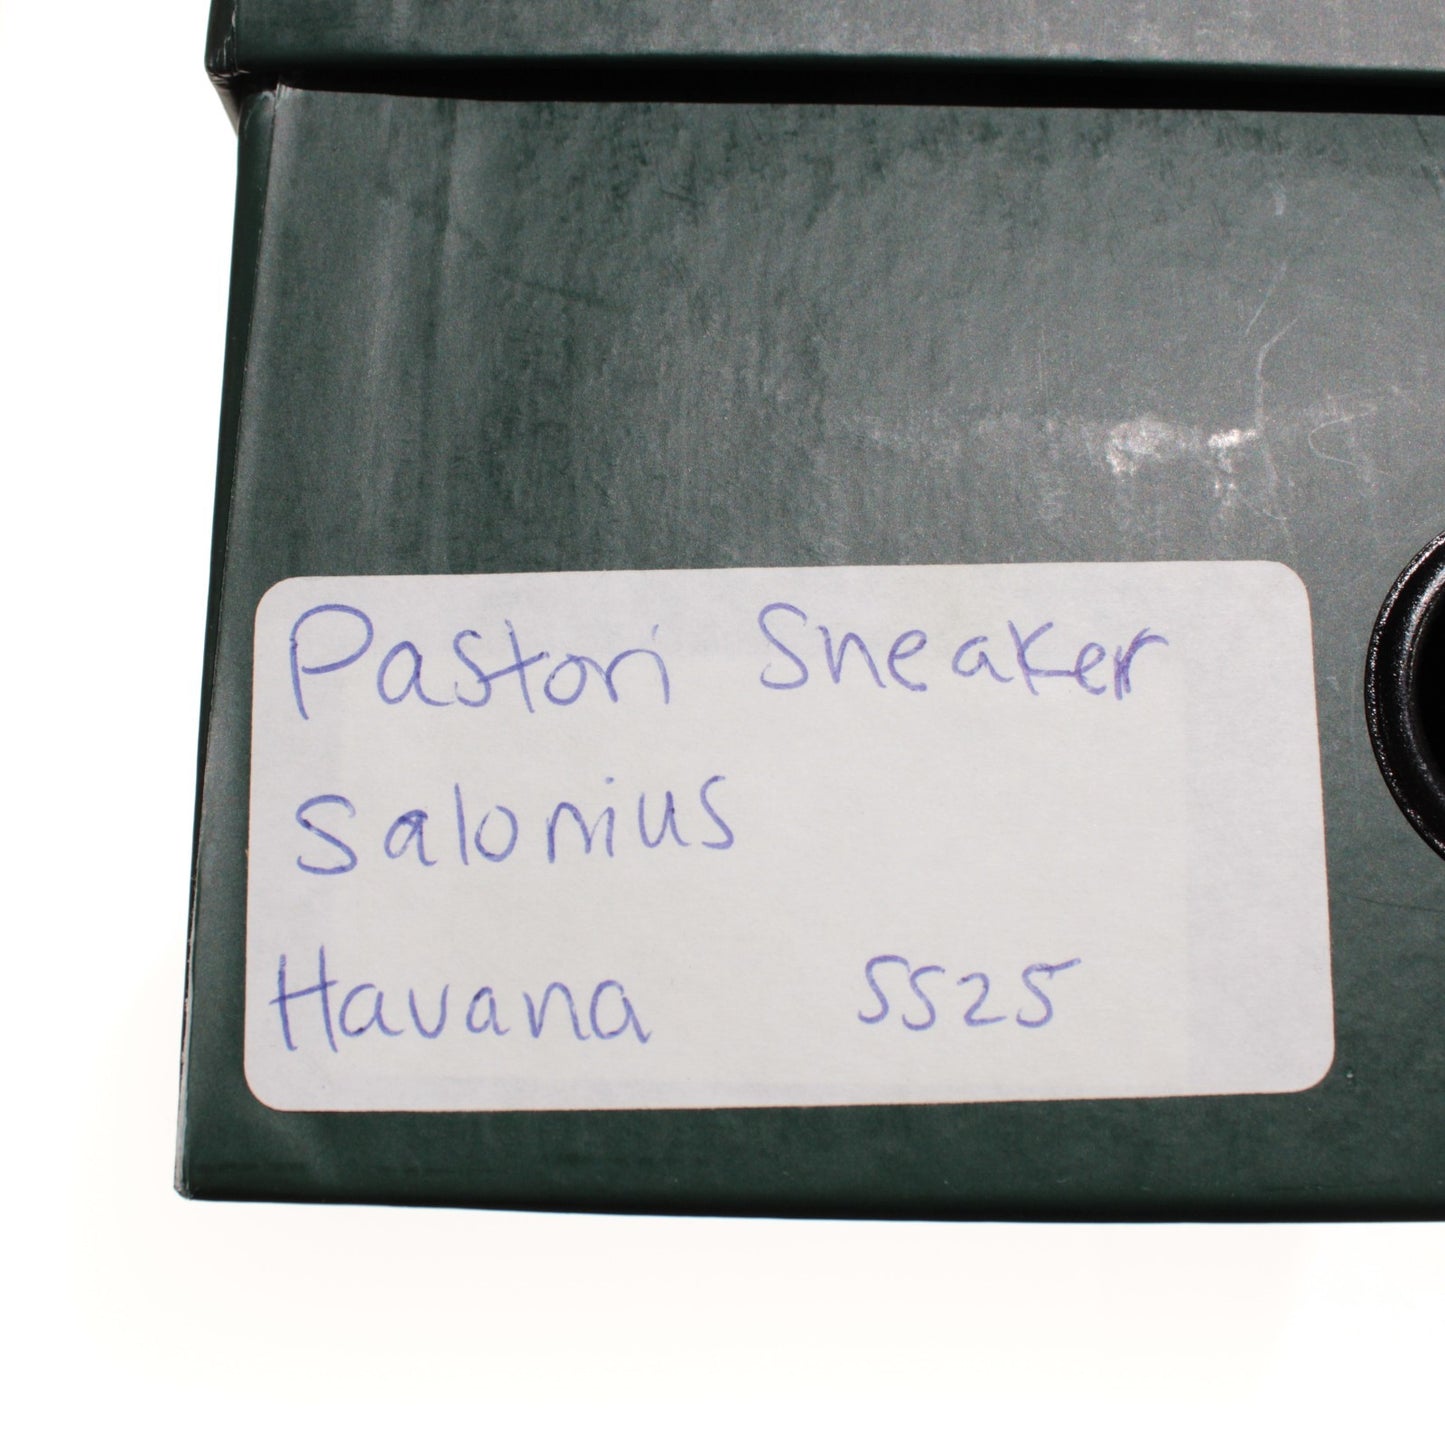 Pastori Sneaker
Salonius
Havana SS25